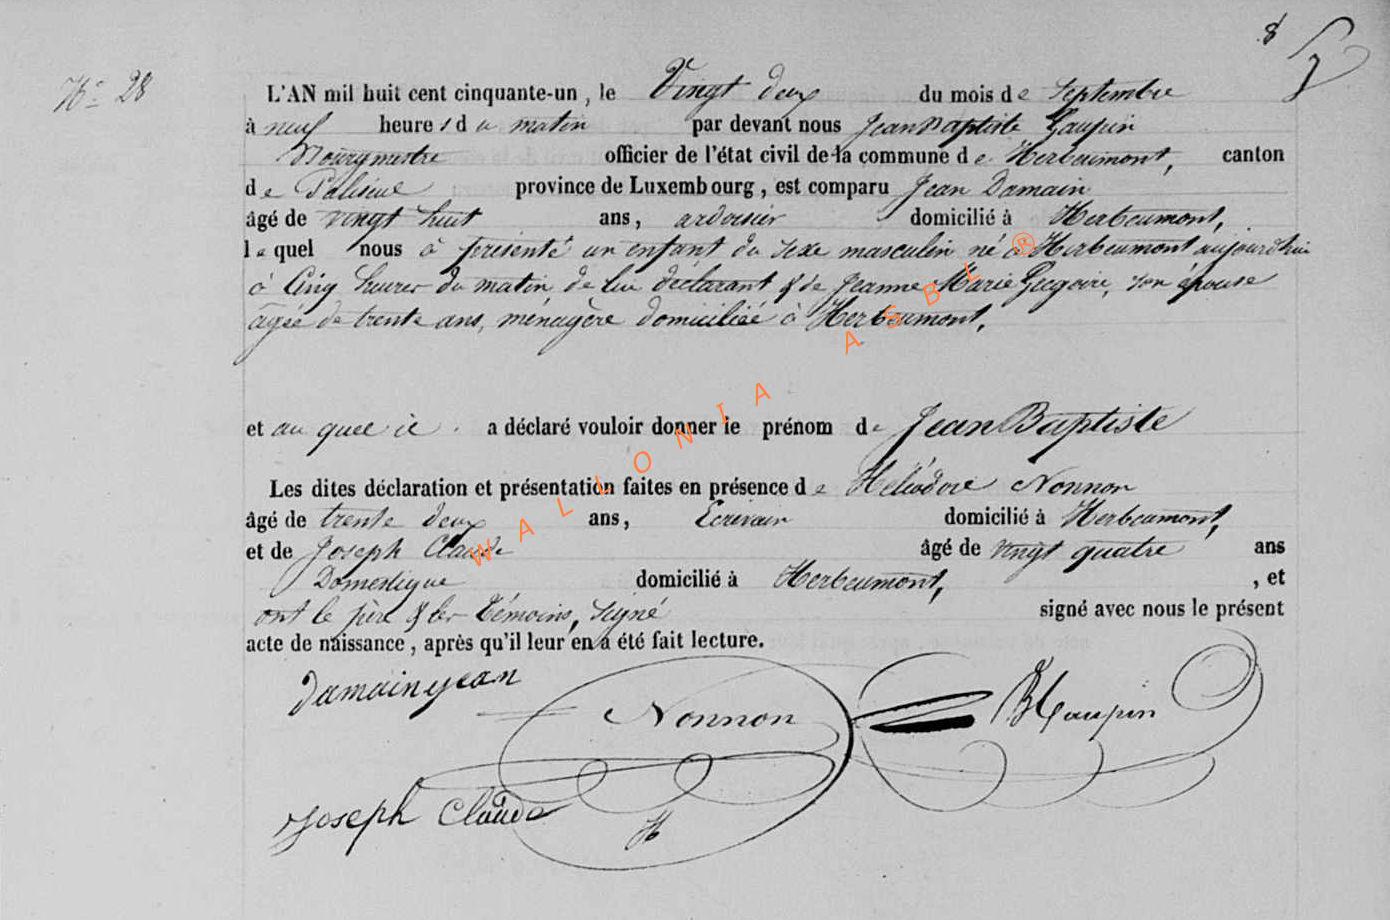 8
N° 28
L'AN mil huit cent cinquante-un, le Vingt deux du mois de Septembre
à neuf heures du matin par devant nous Jean Baptiste Gaupin
Bourgmestre officier de l'état civil de la commune de Herbeumont, canton
de Paliseul province de Luxembourg, est comparu Jean Damain
âgé de vingt huit ans, ardoisier domicilié à Herbeumont,
lequel nous a présenté un enfant du sexe masculin né à Herbeumont aujourdhui
à Cinq heures du matin de lui déclarant & de Jeanne Marie Gregoire, son épouse
agée de trente ans, ménagère domiciliée à Herbeumont,
et auquel il a déclaré vouloir donner le prénom de Jean Baptiste
Les dites déclaration et présentation faites en présence de Héliodore Nonnon
âgé de trente deux ans, Ecrivain domicilié à Herbeumont,
et de Joseph Claude âgé de vingt quatre ans
Domestique domicilié à Herbeumont, , et
ont le père & les témoins, signé signé avec nous le présent
acte de naissance, après qu'il leur en a été fait lecture.
Damain jean
Nonnon
Joseph Claude
WALLONIA ASBL ®